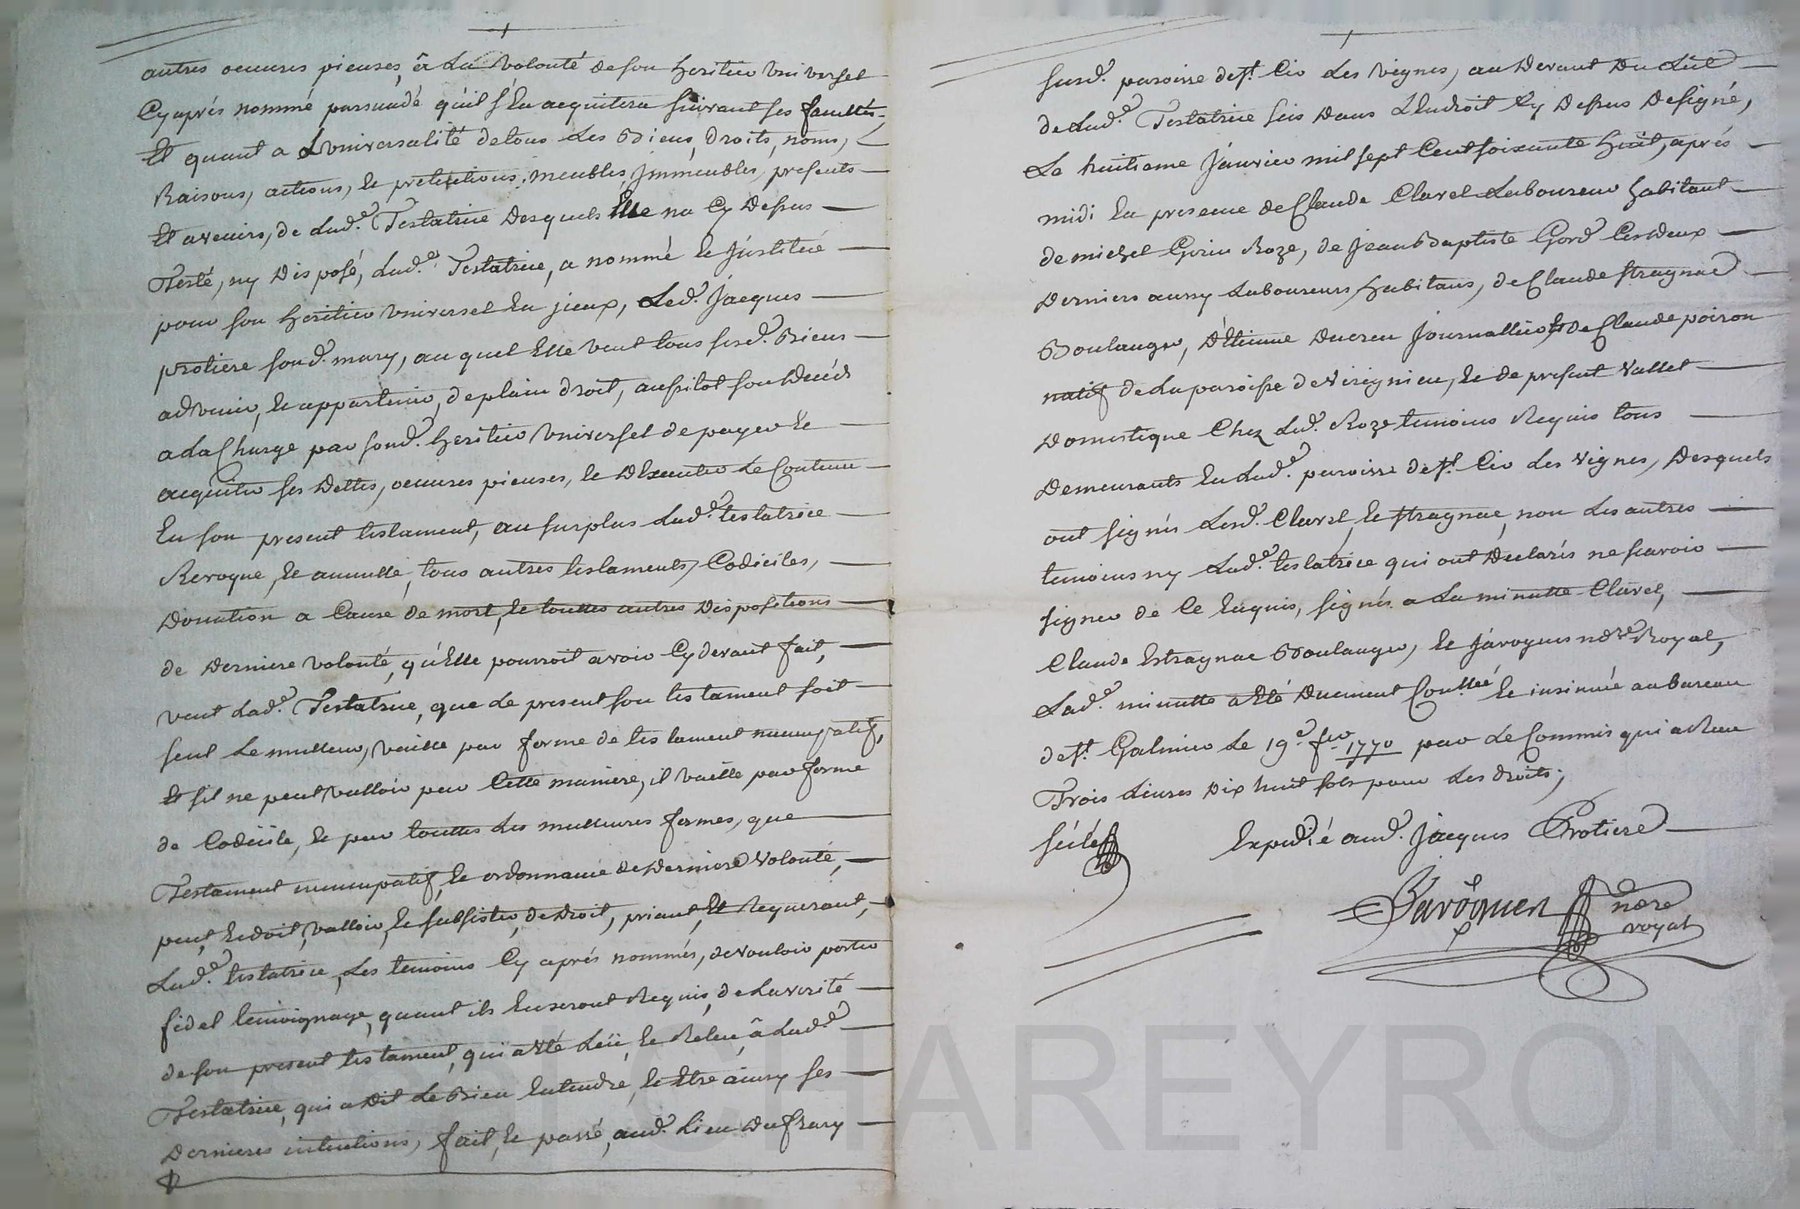 autres oeuures pieuses, â La Volonté de son heritier Vniversel
Cy aprés nommé persuadé qu'il s'En acquitera suivant ses facultés,
Et quant a L'vniversalité de tous Les Biens, droits, noms,
Raisons, actions, Et pretentions, meubles Jmmeubles, presents
Et avenirs, de Lad.e Testatrice Desquels Elle na Cy Dessus
Testé, ny Disposé, Lad.e Testatrice, a nommé Et Jnstitué
pour son heritier Vniversel En jceux, Led. Jacques
protiere sond. mary, au quel Elle veut tous sesd. Biens
advenir, Et appartenir, de plain droit, aussitot son Decés
a La Charge par sond. heritier Vniversel de payer Et
acquiter ses Dettes, oeuures pieuses, Et D'Executer Le Contenu
En son present testament, au surplus Lad.e testatrice
Revoque, Et annulle, tous autres testaments, Codiciles,
Donation a Cause de mort, Et touttes autres Dispositions
de Derniere volonté, qu'Elle pourroit avoir Cy devant fait,
veut Lad.e Testatrice, que Le present son testament soit
seul Le meilleur, vaille par forme de testament nuncupatif,
Et s'il ne peut valloir par Cette maniere, il vaille par forme
de Codicile, Et par touttes Les meilleures formes, que
Testament nuncupatif, Et ordonnance de Derniere Volonté,
peut, Et doit, valloir, Et subsister, de Droit, priant, Et Requerant,
Lad.e testatrice, Les temoins Cy aprés nommés, de vouloir porter
fidel temoignage, quant ils En seront Requis, de La verité
de son present testament, qui a Eté Leü, Et Releu, â Lad.e
Testatrice, qui a Dit Le Bien Entendre, Et Etre ainsy ses
Dernieres intentions, fait, Et passé, aud. Lieu Du
susd. paroisse de St. Cir Les vignes, au Devant Du
de Lad.e Testatrice seis Dans L'Endroit Cy Dessus Designé,
Le huitieme Janvier mil sept Cent soixante huit, aprés
midi En presence de Claude Clavel Laboureur habitant
de michel Roze, de Jean Baptiste Ces Deux
Derniers aussy Laboureurs, habitans, de Claude stragnac
Boulanger, D'Etienne Ducreu Journallier, Et de Claude poiron
natif de La paroisse de Virignieu, Et de present Vallet
Domestique Chez Led. Roze temoins Requis tous
Demeurants En Lad.e paroisse de St. Cir Les Vignes, Desquels
ont signés Lesd. Clavel, Et stragnac, non Les autres
temoins ny Lad.e testatrice qui ont Declarés ne scavoir
signer de Ce Enquis, signés a La minutte Clavel,
Claude Estragnac Boulanger, Et Javogues nore Royal,
Lad.e minutte a Eté Duement Conllée Et insinuée au bureau
de St. Galmier Le 19.e fer 1770 par Le Commis qui a Receu
Trois Liures Dix huit sols pour Les droits;
Expedié aud. Jacques Protiere
Javogues nore
royal
CHAREYRON